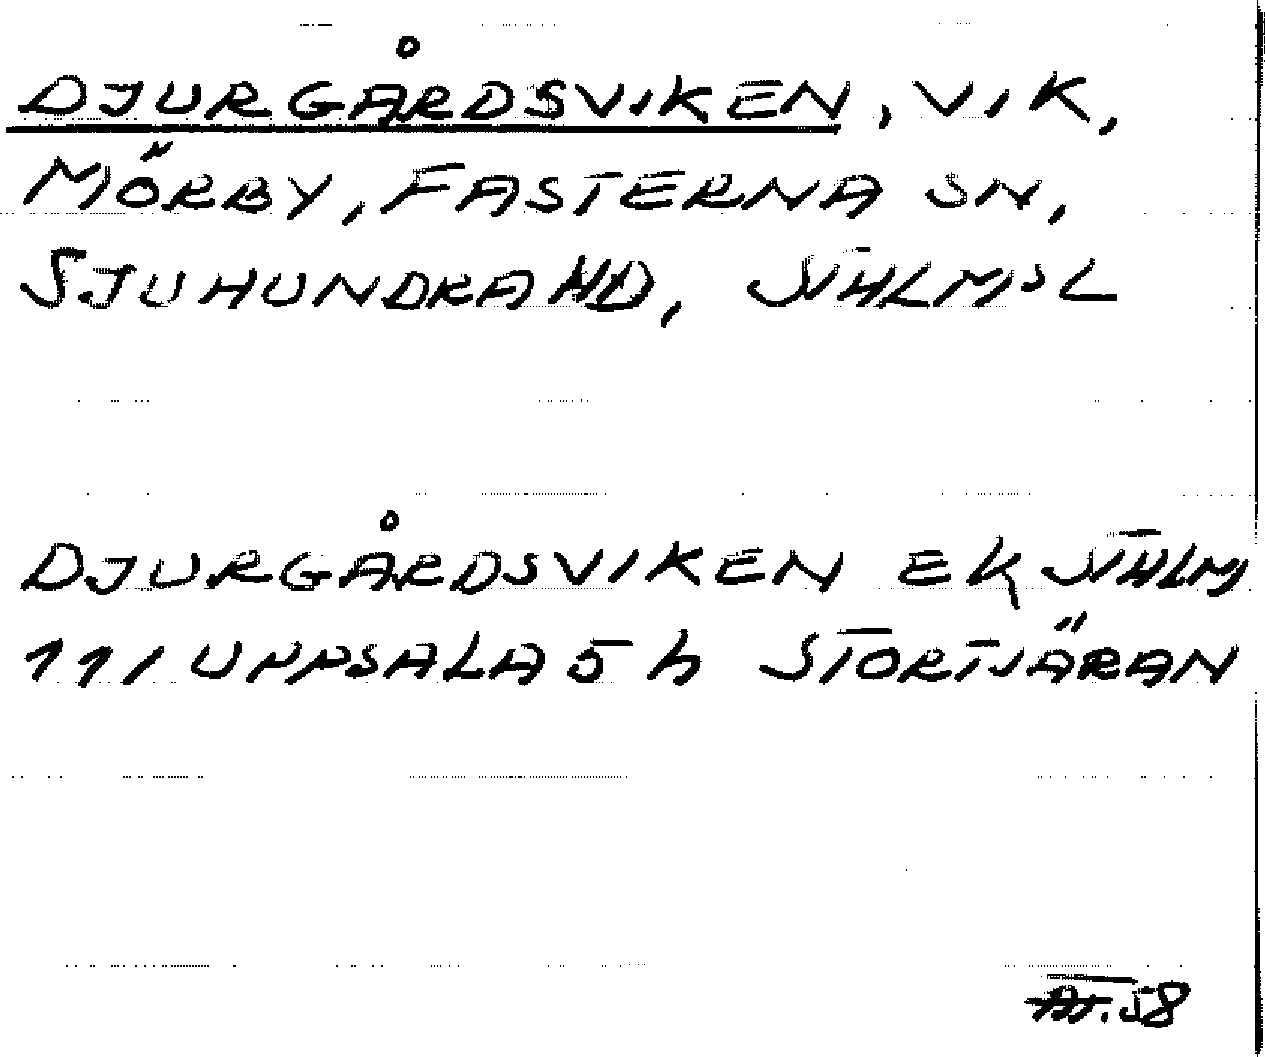 DJURGÅRDSVIKEN, VIK,
MÖRBY, FASTERNA SN,
SJUHUNDRA HD, STHLMS L
DJURGÅRDSVIKEN EK STHLM
111 UPPSALA 5 h STORTJÄRAN